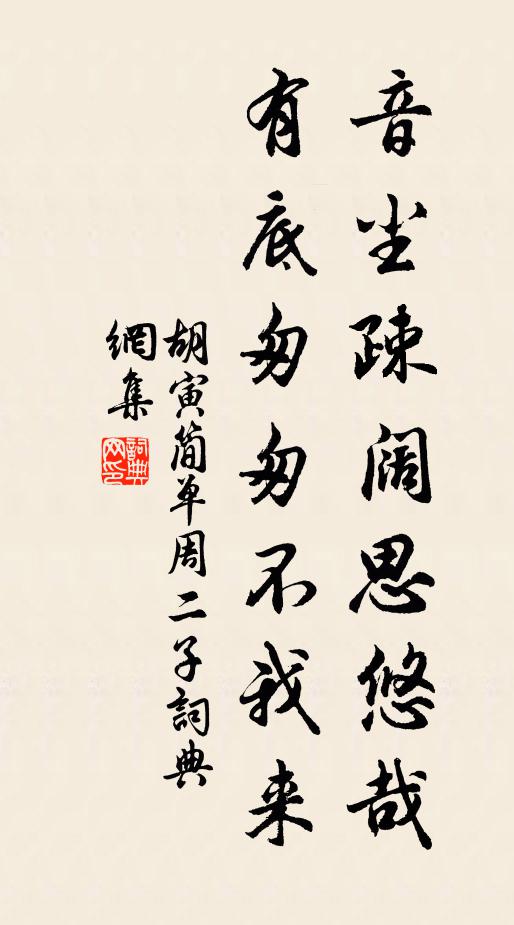 音尘疎阔思悠哉
有底匆匆不我来
胡寅简单周二子詞典
網集
詞典
网印